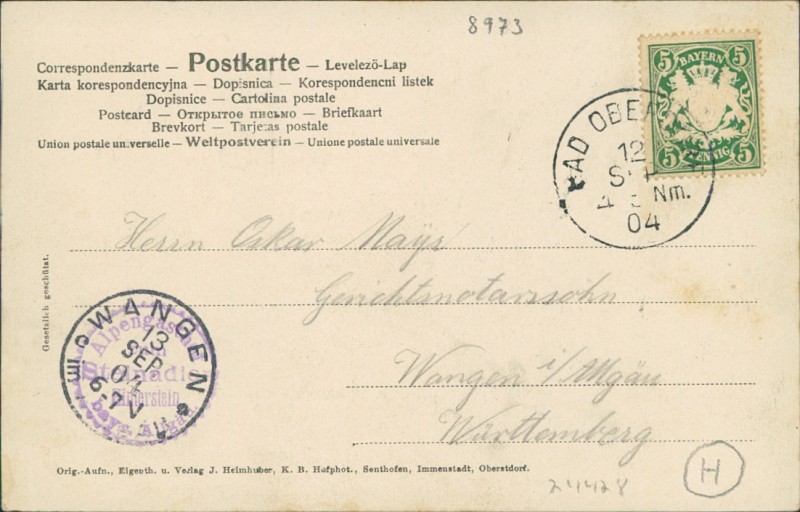 8973
Correspondenzkarte — Postkarte — Levelező-Lap
Karta korespondencyjna — Dopisnica — Korespondencni listek
Dopisnice — Cartolina postale
Postcard — Открытое письмо — Briefkaart
Brevkort — Tarjetas postale
Union postale universelle — Weltpostverein — Unione postale universale
5 BAYERN 5
5 PFENNIG 5
BAD OBER
12
SEP
Nm.
04
Herrn Oskar Mayr
Gerichtsnotarssohn
Wangen i/Allgäu
Württemberg
Gesetzlich geschützt.
WANGEN
13
SEP
04
6-7 V
Alpengasth
Steinadler
Hinterstein
bayr.
Orig.-Aufn., Eigenth. u. Verlag J. Heimhuber, K. B. Hofphot., Sonthofen, Immenstadt, Oberstdorf.
24428
H